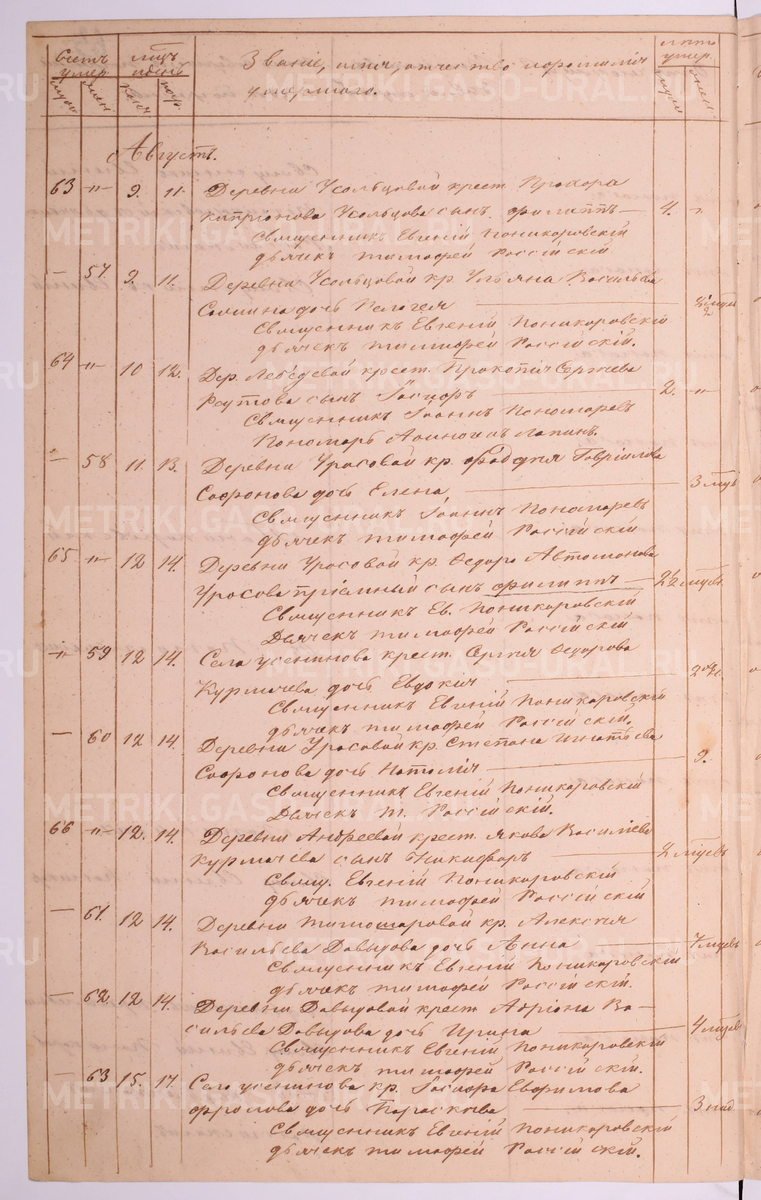 Счетъ умер. мѣсяцъ и день Званіе, имя, отчество и фамилія лѣта умер.
умершаго.
Августъ.
63 „ 9. 11. Деревни Усольцовой крест. Прохора
Кипріонова Усольцова сынъ Филиппъ — 4. „
Священникъ Евгеній Поникоровскій
дьячекъ Тимофей Россійскій
— 57 9. 11. Деревни Усольцовой кр. Ульяна Васильева
Сомина дочь Пелагея
Священникъ Евгеній Поникоровскій
дьячекъ Тимофей Россійскій.
64 „ 10 12. Дер. Лебедевой крест. Прокопія Сергѣева
Реутова сынъ — 2. „
Священникъ Іоаннъ Пономаревъ
Пономарь
— 58 11. 13. Деревни Урасовой кр. Гавріилова
Софонова дочь Елена — 3 мѣс
Священникъ Іоаннъ Пономаревъ
дьячекъ Тимофей Россійскій
65 „ 12 14. Деревни Урасовой кр. Ѳедора Автомонова
Урасова пріемный сынъ Филиппъ — 2½ мѣсец.
Священникъ Ев. Поникоровскій
Дьячекъ Тимофей Россійскій
„ 59 12 14. Села Усенинова крест. Сергія Ѳедорова
Курмачева дочь Евдокія —
Священникъ Евгеній Поникоровскій
дьячекъ Тимофей Россійскій.
— 60 12 14. Деревни Урасовой кр. Степана Игнатьева
Софонова дочь Наталія — 9.
Священникъ Евгеній Поникоровскій
Дьячекъ Т. Россійскій.
66 „ 12. 14. Деревни Андреевой крест. Якова Василіева
Курмачева сынъ Никифоръ — 2 мѣсецъ
Свящ. Евгеній Поникоровскій
дьячекъ Тимофей Россійскій
— 61. 12 14. Деревни Тимошаровой кр. Алексія
Васильева Давыдова дочь Анна — 7 мѣсецъ
Священникъ Евгеній Поникоровскій
дьячекъ Тимофей Россійскій.
— 62. 12 14. Деревни Давыдовой крест. Адріона Ва-
сильева Давыдова дочь Ирина — 4 мѣсец
Священникъ Евгеній Поникоровскій
дьячекъ Тимофей Россійскій.
— 63 15. 17. Село Усенинова кр. Евфимова
Фролова дочь Параскева — 3 нед
Священникъ Евгеній Поникоровскій
дьячекъ Тимофей Россійскій.
METRIKI.GASO-URAL.RU